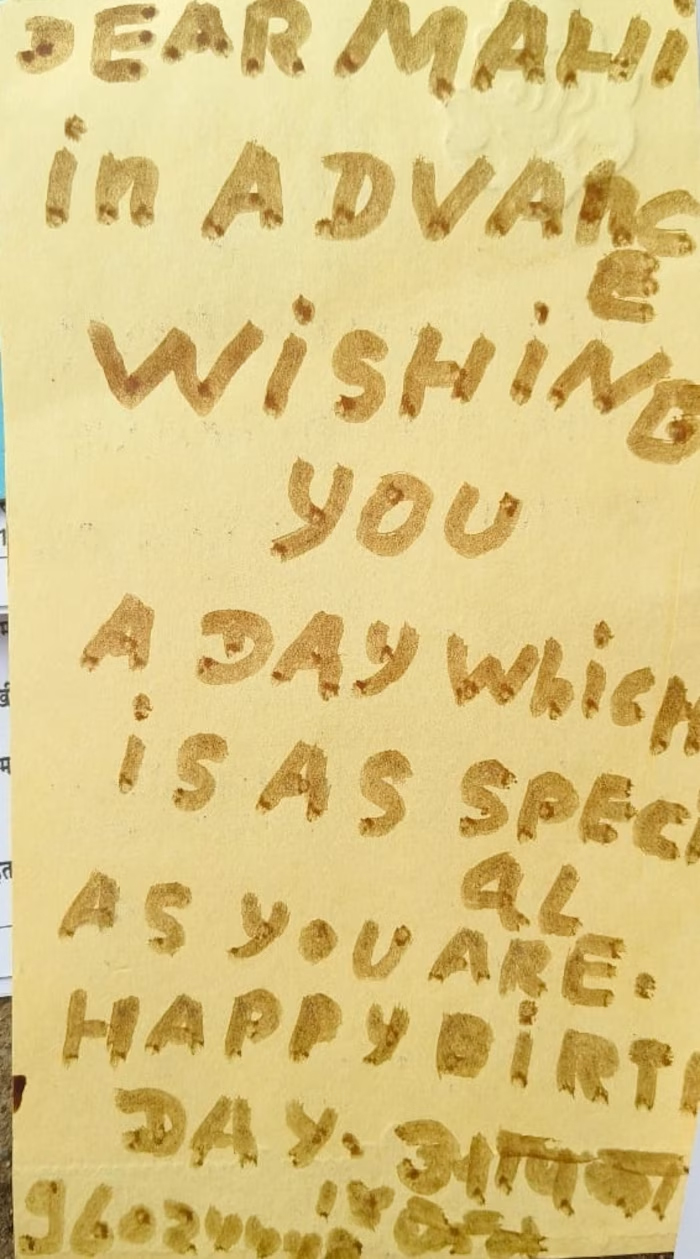 DEAR MAHI
in ADVANC
E
WiSHiNG
YOU
A DAY WhicH
iS AS SPECi
aL
AS YOU ARE.
HAPPY BiRTH
DAY. आपका